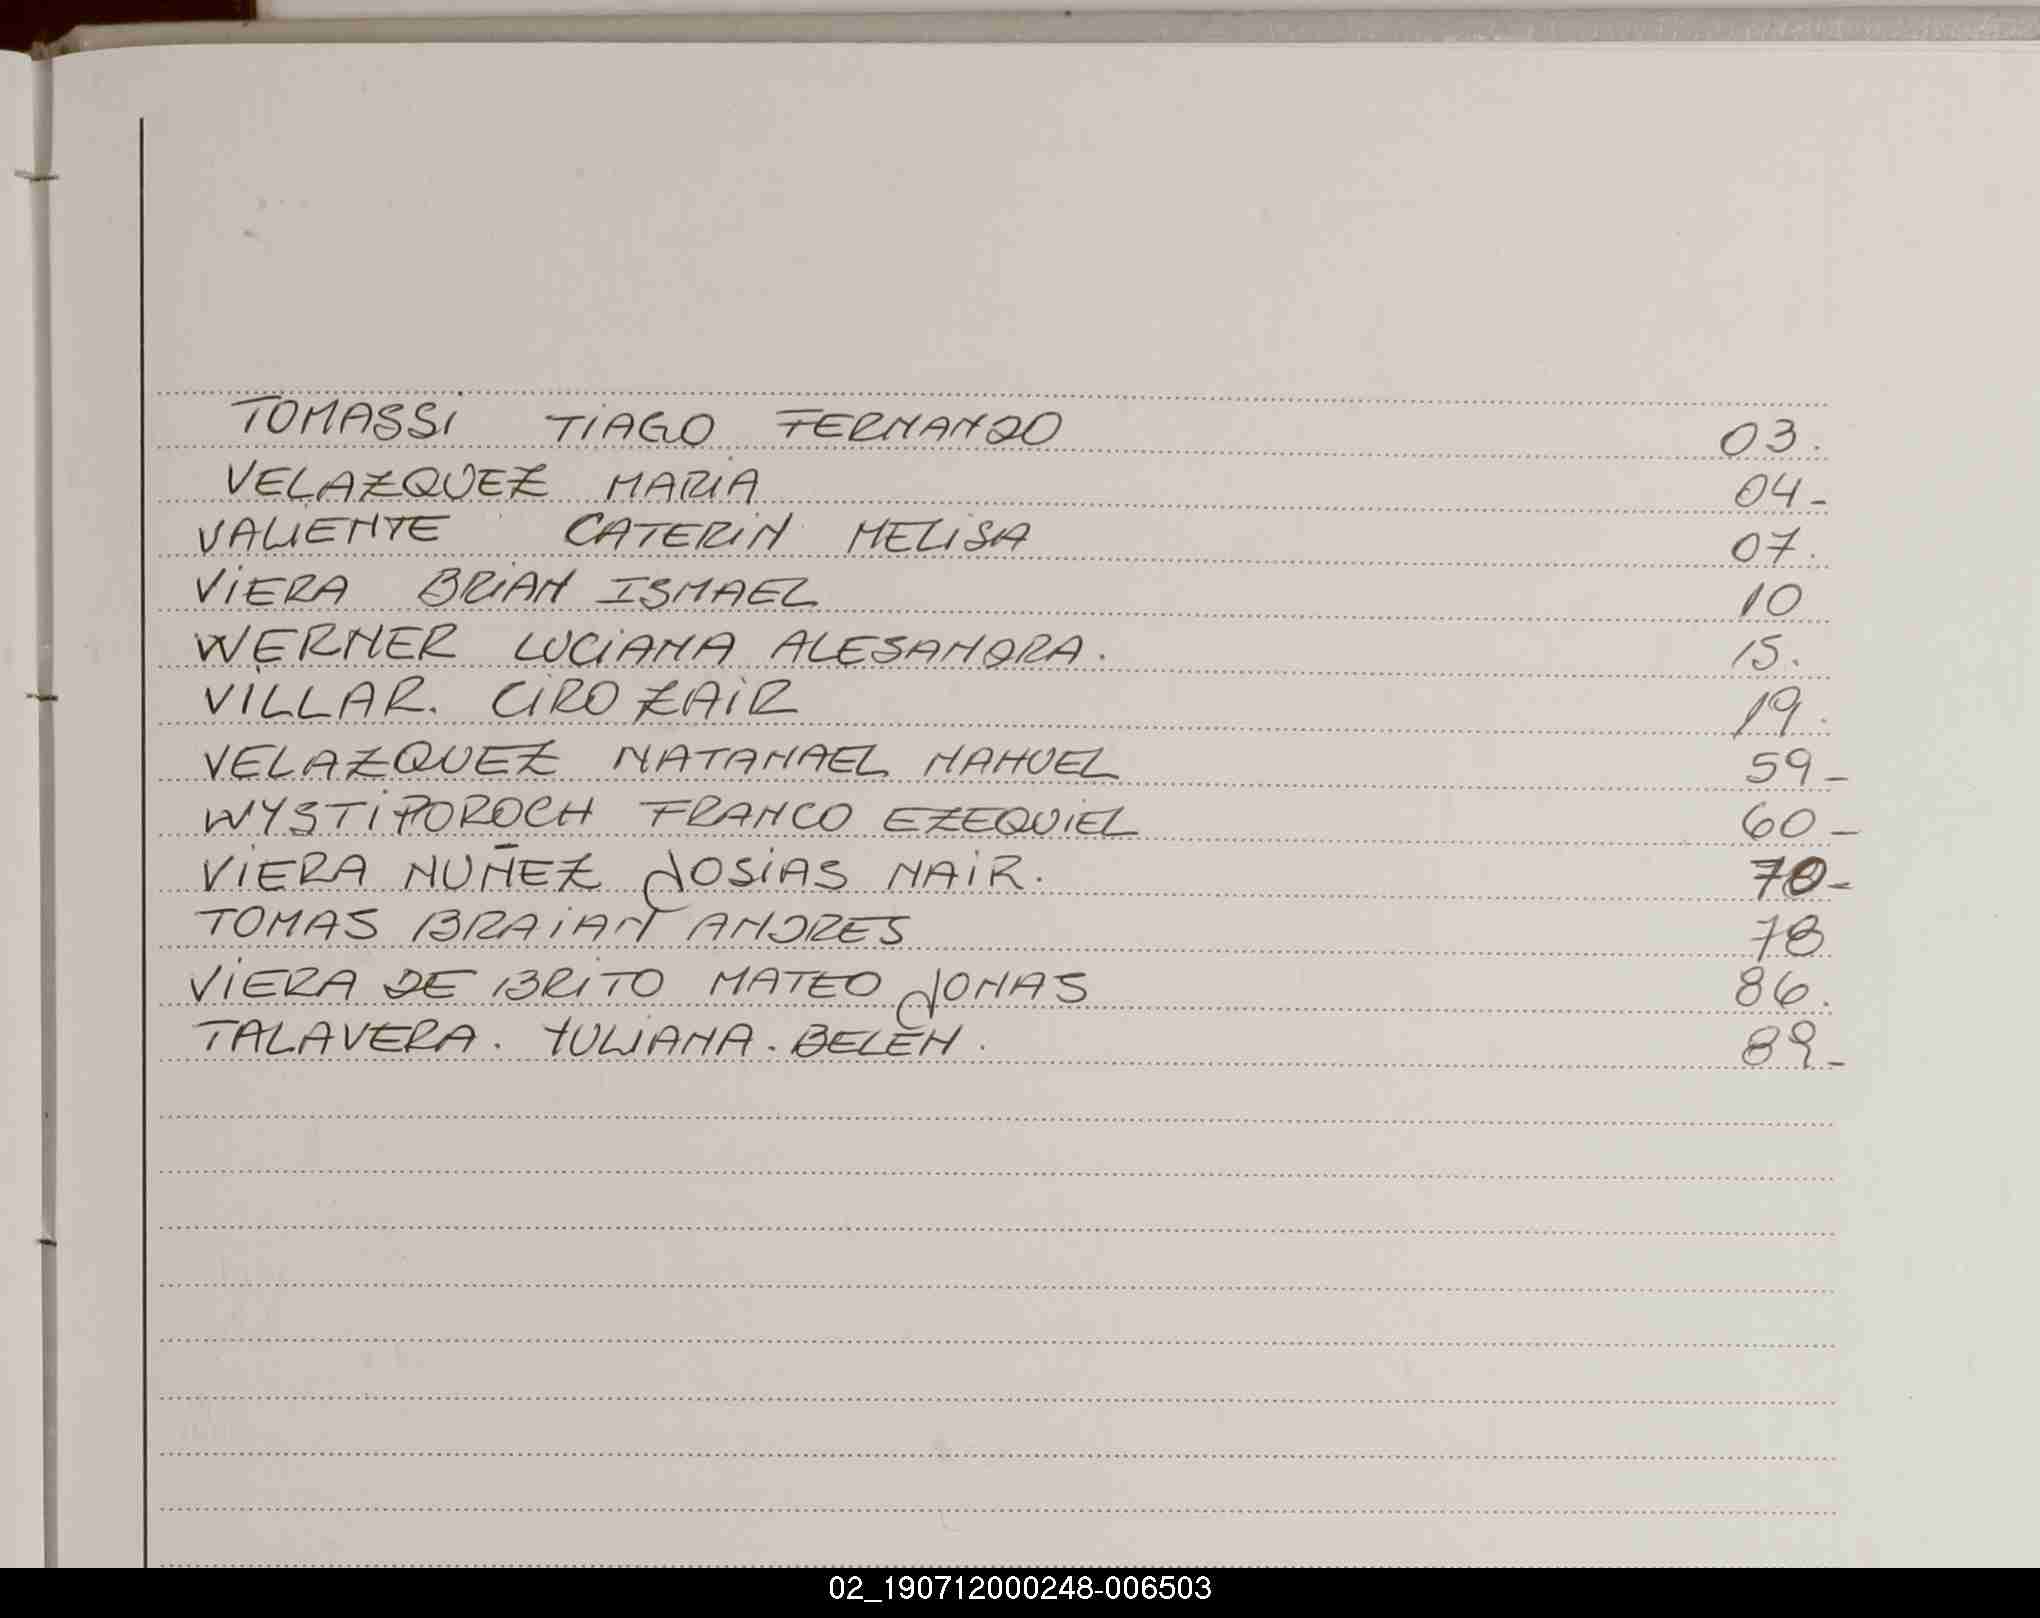 TOMASSI TIAGO FERNANDO 03.
VELAZQUEZ MARIA 04-
VALIENTE CATERIN MELISA 07.
VIERA BRIAN ISMAEL 10
WERNER LUCIANA ALESANDRA. 15.
VILLAR. CIRO ZAIR 19.
VELAZQUEZ NATANAEL NAHUEL 59-
WYSTIPOROCH FRANCO EZEQUIEL 60-
VIERA NUÑEZ JOSIAS NAIR. 70-
TOMAS BRAIAN ANDRES 78
VIERA DE BRITO MATEO JONAS 86.
TALAVERA. YULIANA. BELEN. 89-
02_190712000248-006503